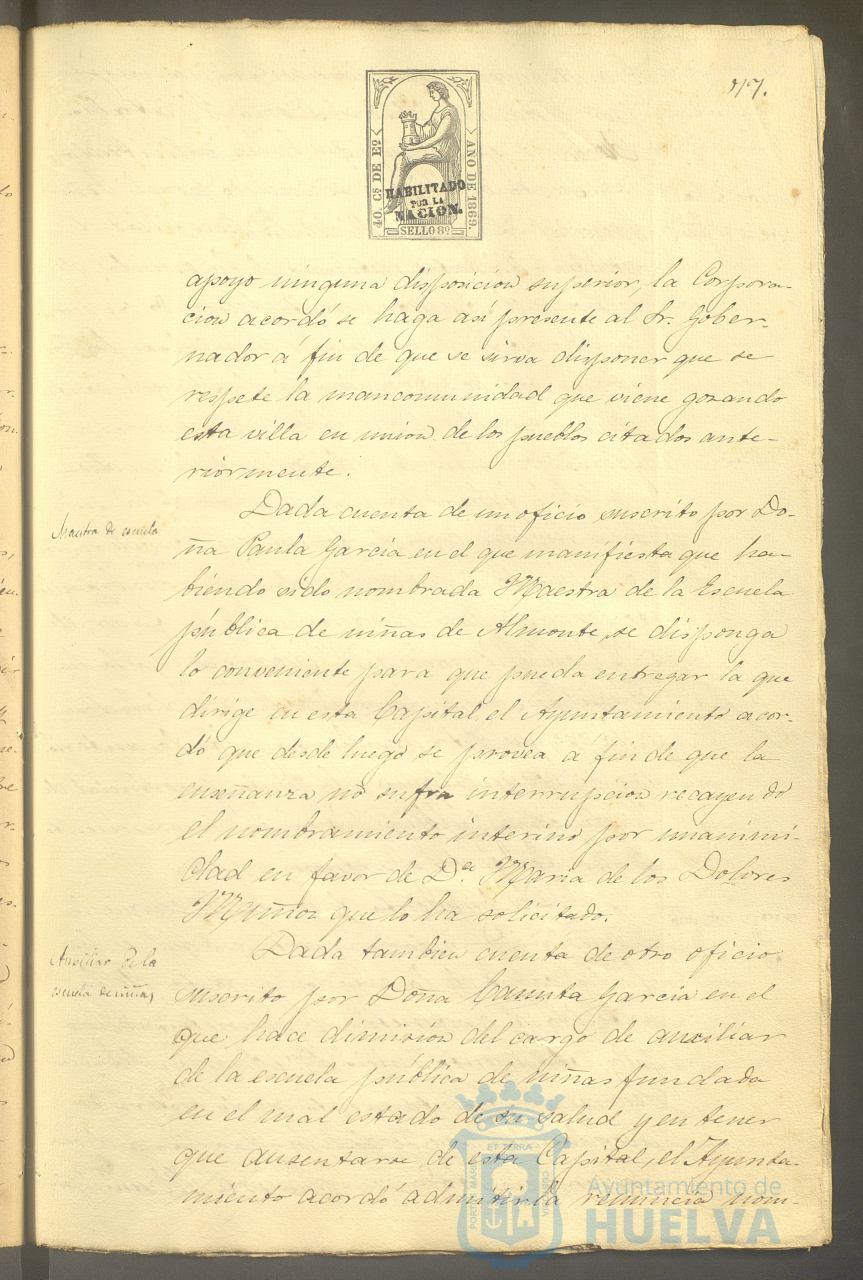 117.
40. Cs DE Eo
AÑO DE 1869.
HABILITADO
POR LA
NACION.
SELLO 8º
apoyo ninguna disposicion superior, la Corpora-
cion acordó se haga así presente al Sr. Gober-
nador á fin de que se sirva disponer que se
respete la mancomunidad que viene gozando
esta villa en union de los pueblos citados ante-
riormente.
Maestra de escuela
Dada cuenta de un oficio suscrito por Do-
ña Paula Garcia en el que manifiesta que ha-
biendo sido nombrada Maestra de la Escuela
pública de niñas de Almonte, se disponga
lo conveniente para que pueda entregar la que
dirige en esta Capital, el Ayuntamiento acor-
dó que desde luego se provea á fin de que la
enseñanza no sufra interrupcion recayendo
el nombramiento interino por unanimi-
dad en favor de Dª. Maria de los Dolores
Muñoz que lo ha solicitado.
Auxiliar de la
escuela de niñas
Dada tambien cuenta de otro oficio
suscrito por Doña Garcia en el
que hace dimision del cargo de auxiliar
de la escuela pública de niñas fundada
en el mal estado de su salud y en tener
que ausentarse de esta Capital, el Ayunta-
miento acordó admitirla renuncia nom-
PORTUS MARIS ET TERRAE CUSTODIA
Ayuntamiento de
HUELVA